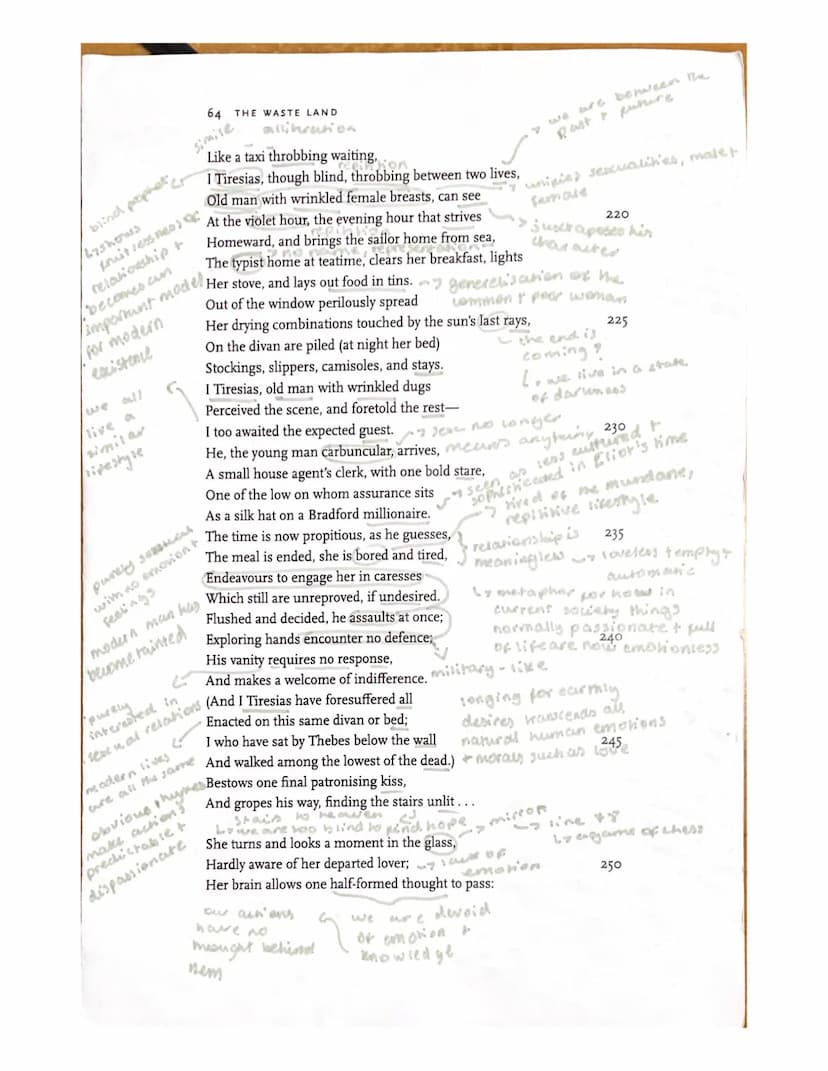 64 THE WASTE LAND
simile
alliteration
we are between the
past + future
Like a taxi throbbing waiting,
repitition
I Tiresias, though blind, throbbing between two lives,
blind prophet
unifies sexualities, male +
female
Old man with wrinkled female breasts, can see
At the violet hour, the evening hour that strives
220
juxtaposes his
character
repitition
Homeward, and brings the sailor home from sea,
no name, representation
The typist home at teatime, clears her breakfast, lights
Her stove, and lays out food in tins.
generalisation of the
common + poor woman
shows
fruitlessness of
relationship +
becomes an
important model
for modern
existence
Out of the window perilously spread
Her drying combinations touched by the sun's last rays,
225
the end is
coming?
we live in a state
of darkness
On the divan are piled (at night her bed)
Stockings, slippers, camisoles, and stays.
I Tiresias, old man with wrinkled dugs
we all
live a
similar
lifestyle
Perceived the scene, and foretold the rest—
I too awaited the expected guest.
230
sex no longer
means anything
He, the young man carbuncular, arrives,
A small house agent's clerk, with one bold stare,
seen as less cultured +
sophisticated in Eliot's time
One of the low on whom assurance sits
As a silk hat on a Bradford millionaire.
tired of the mundane,
repititive lifestyle
The time is now propitious, as he guesses,
235
The meal is ended, she is bored and tired,
relationship is
meaningless
loveless + empty +
automatic
Endeavours to engage her in caresses
purely
with no emotion +
feelings
Which still are unreproved, if undesired.
metaphor for how in
current society things
normally passionate + full
of life are now emotionless
Flushed and decided, he assaults at once;
modern man has
become tainted
Exploring hands encounter no defence;
240
His vanity requires no response,
And makes a welcome of indifference.
military-like
purely
interested in
sexual relations
(And I Tiresias have foresuffered all
Enacted on this same divan or bed;
longing for earthly
desires transcends all
natural human emotions
+ morals such as love
I who have sat by Thebes below the wall
245
And walked among the lowest of the dead.)
modern lives
are all the same
Bestows one final patronising kiss,
And gropes his way, finding the stairs unlit . . .
obvious rhymes
make actions
predictable +
dispassionate
stairs to heaven
we are too blind to find hope
mirror
line 78
a game of chess
She turns and looks a moment in the glass,
Hardly aware of her departed lover;
250
lack of
emotion
Her brain allows one half-formed thought to pass:
our actions
have no
thought behind
them
we are devoid
of emotion +
knowledge